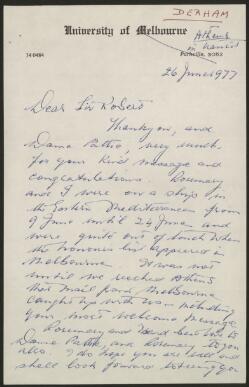 DERHAM
University of Melbourne
Athens
in transit
Parkville, 3052
26 June 1977
Dear Sir Robert
Thank you, and
Dame Pattie, very much
for your kind message and
congratulations. Rosemary
and I were on a ship in
the Eastern Mediterranean from
9 June until 24 June and
were quite out of touch when
the honours list appeared in
Melbourne. It was not
until we reached Athens
that mail from Melbourne
caught up with us including
your most welcome message.
Rosemary and send
Dame Pattie, and Rosemary to you
also. I do hope you are well and
shall look forward to seeing you